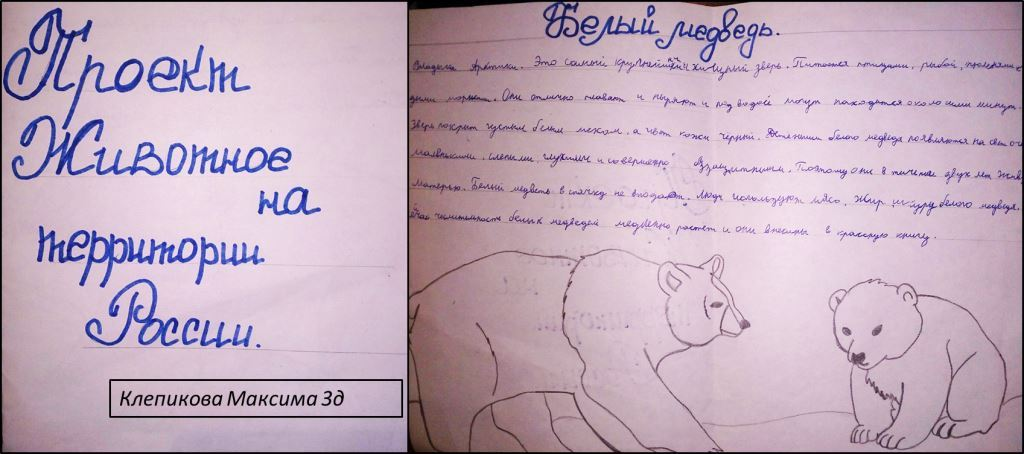 Проект
Животное
на
территории
России.
Клепикова Максима 3д
Белый медведь.
Владыка Арктики. Это самый крупнейший хищный зверь. Питается птицами, рыбой,
моржами. Они отлично плавают и ныряют и под водой могут находиться около семи минут.
Зверь покрыт густым белым мехом, а цвет кожи черный. Детеныши белого медведя появляются на свет
маленькими, слепыми, глухими и совершенно беззащитными. Поэтому они в течение двух лет
матерью. Белый медведь в спячку не впадает. Люди используют мясо, жир и шкуру белого медведя.
численность белых медведей медленно растет и они внесены в красную книгу.